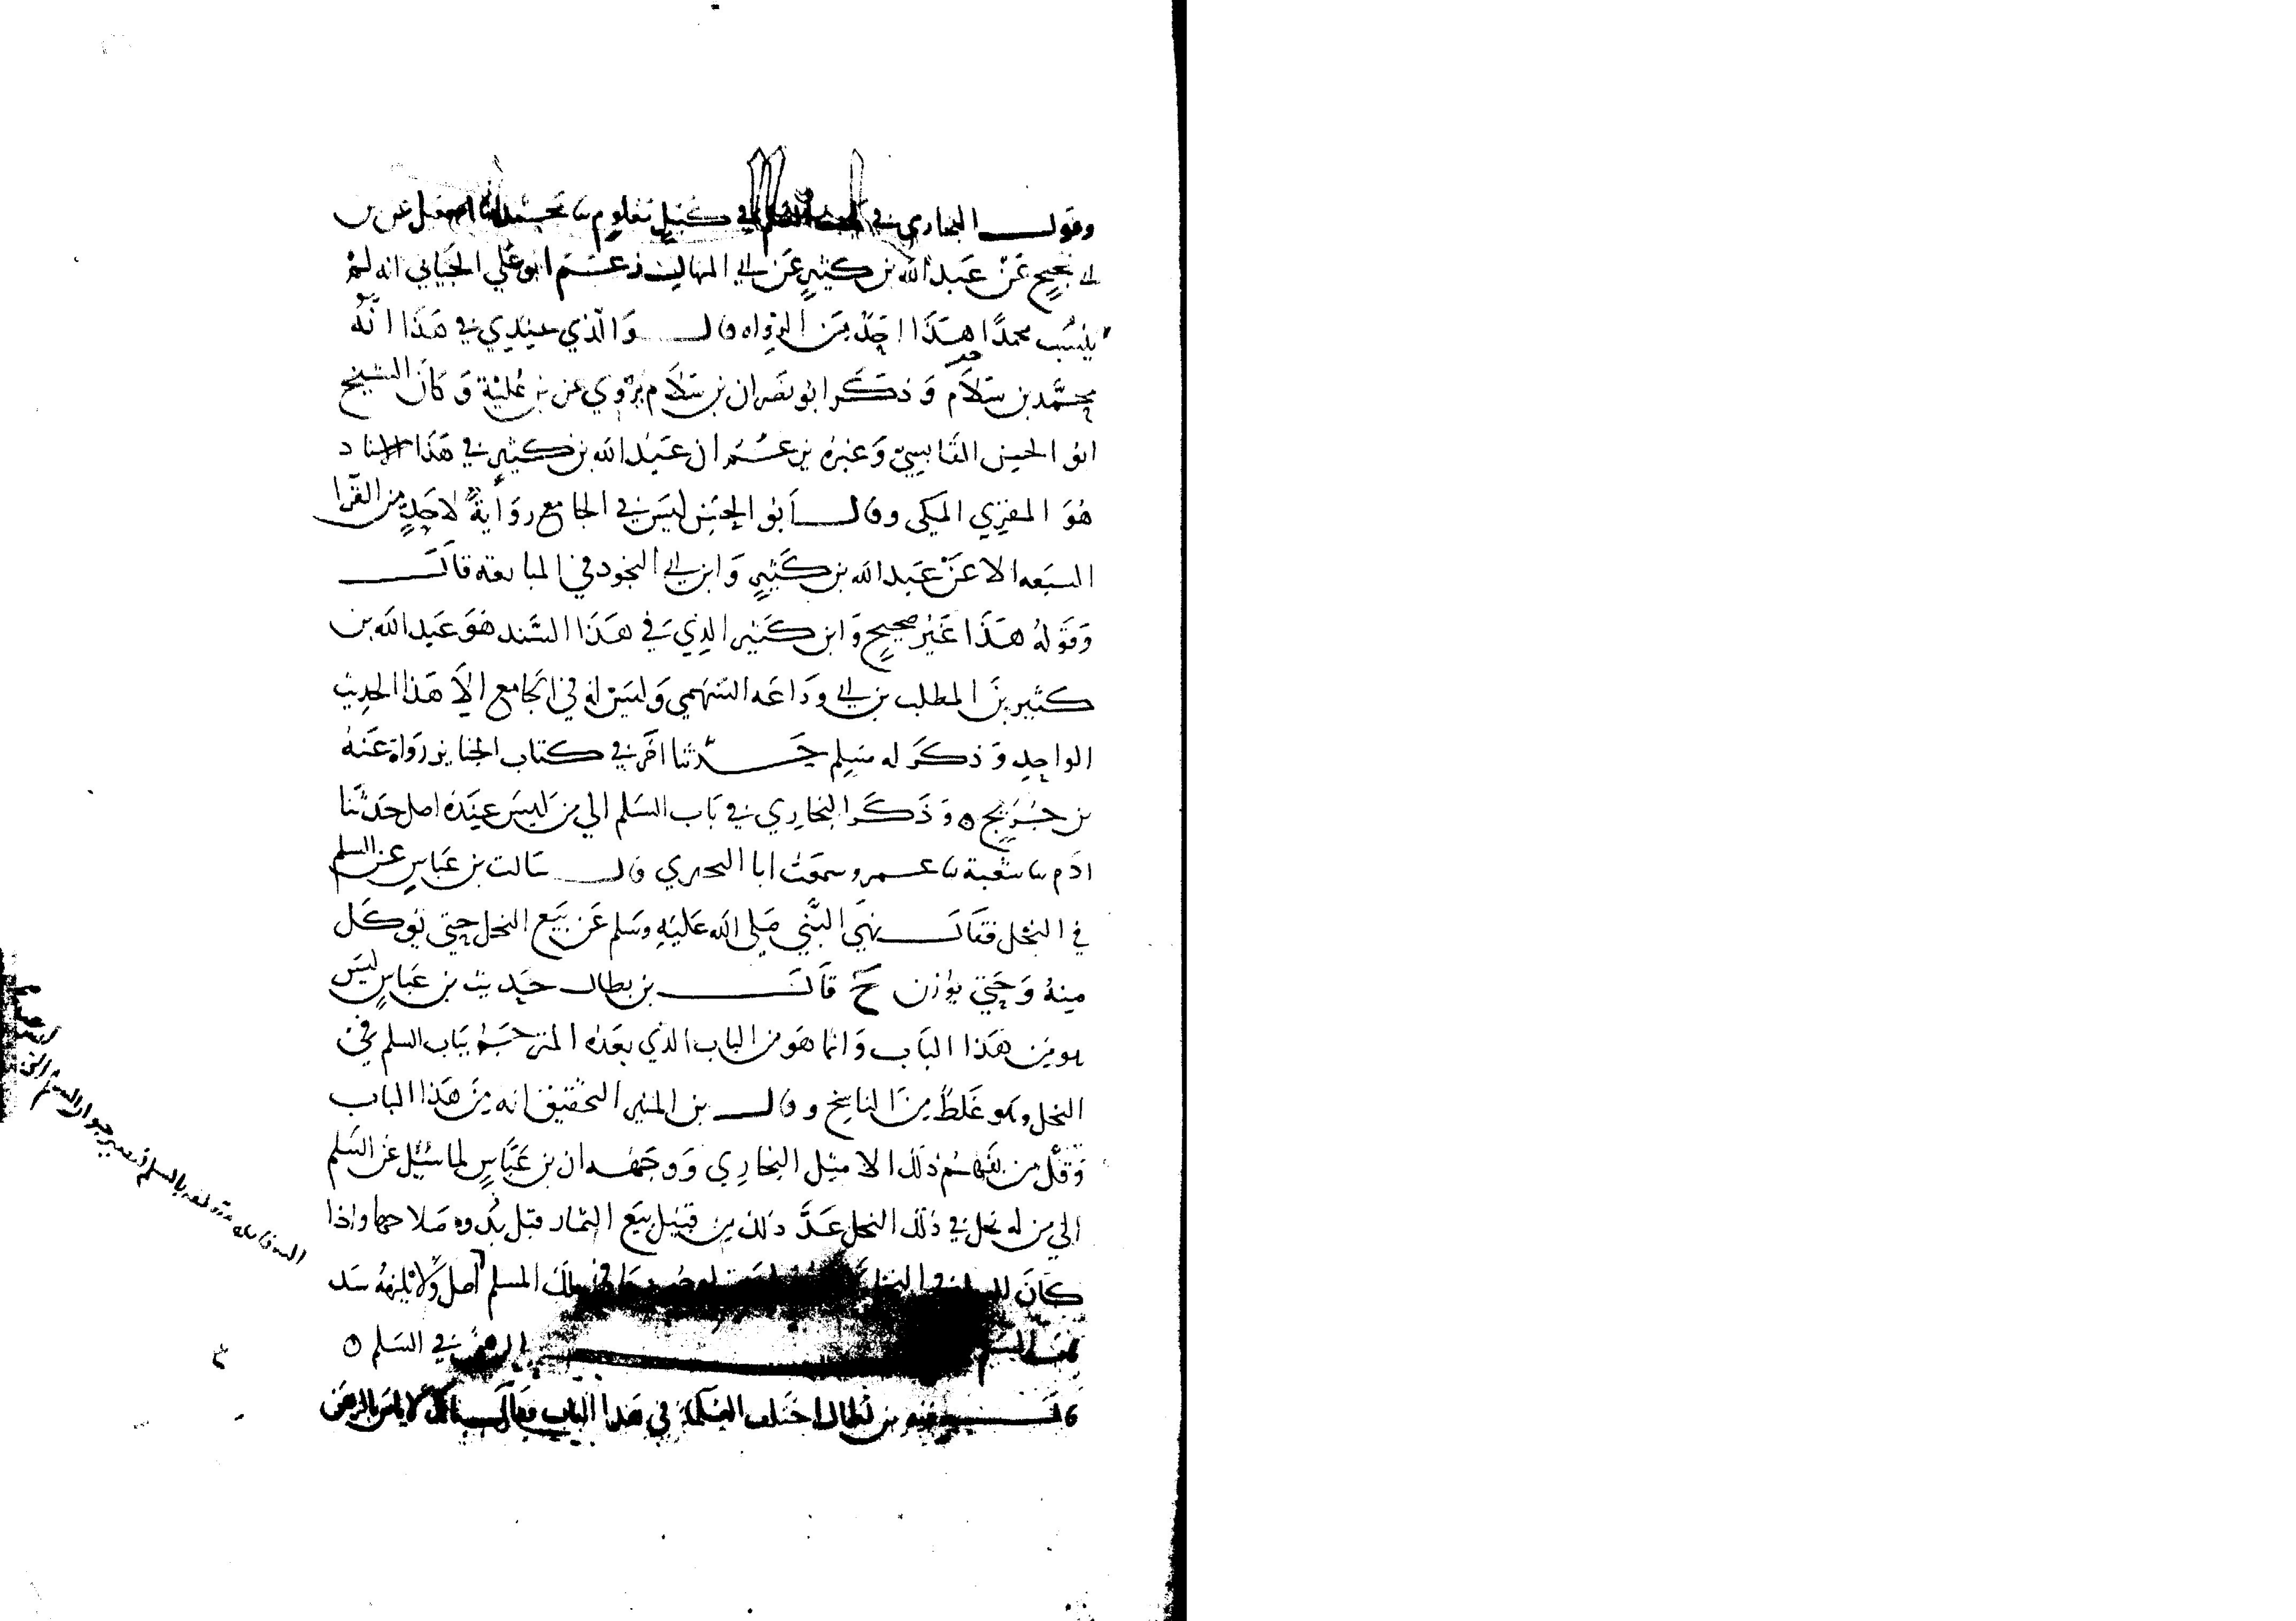 وقول البخاري في السلم في كيل معلوم ثنا محمد انا اسمعيل عن بن
ابي نجيح عَنْ عَبد الله بن كثير عَن ابي المنهالِ زعَم ابو عَلي الجَياني انه لمْ
ينسُب محمدًا هَذَا احَدٌ مِنَ الرواه قال وَالّذي عِندِي في هَذا انّهُ
محمَّد بن سَلاَم وَذكَر ابو نصَر ان بن سَلاَم يَرْوي عن بن عُليّة وَكانَ الشيخ
ابو الحسن القَابِسِيّ وَغيرهُ يزعُمُ ان عَبْد الله بن كثير في هَذَا الاسناد
هُوَ المقرِي المكي وقال أبو الحسَن ليسَ في الجامع روَايةً لاحَدٍ من القرا
السَبعه الا عَنْ عَبد الله بن كَثيرٍ وَابن ابي النجود في المبايعة قالَ
وَقَولهُ هَذَا غَيْر صحيح وَابن كَثير الذِي في هَذَا السَّند هُوَ عَبد الله بن
كثير بن المطلب بن ابي ودَاعَه السّهمي وَليسَ لهُ في الجامع الاَّ هَذا الحدِيث
الواحِدِ وَذكَرَ له مسلِم حَدّثنا اخَر في كتاب الجنايز رَوَاهُ عَنهُ
بن جُرَيْج ٥ وَذَكَر البخارِي في بَاب السَلم الي مَن لَيسَ عِندَهُ اصل حَدثنا
ادَم ثنا شعْبة ثنا عمرو سمعَت ابا البحتري قال سَالت بن عَباسٍ عن السلم
في النخل فقَالَ نهيَ النّبي صَلي الله عَليَهِ وسَلم عَن بَيع النخل حتي يُوكَل
مِنهُ وَحتي يُوزن ح قَالَ بن بطال حَديث بن عَباسٍ ليسَ
هو مِن هَذا البَاب وَانما هوَ من الباب الذي بعَده المترجَم بباب السلم في
النخل وهو غَلطٌ مِنَ الناسخ وقال بن المنير التحقيق انه مِنَ هَذا الباب
وَقَلَّ من يفَهم ذلكَ الا مثل البخارِي وَوجَهه ان بن عَبَّاسٍ لما سُئل عَن السَلم
الي من له نخل في ذلك النخل عَدَّ ذلكَ مِن قبيل بَيَع الثمار قبل بُدوه صَلاحها واذا
كانَ المسلم اصل وَلا يلزمهُ سَد
الرهن في السَلم ٥
قالَ فيه بن بطال اختلف العلماء في هَذا الباب فقال لا باس بالرهن